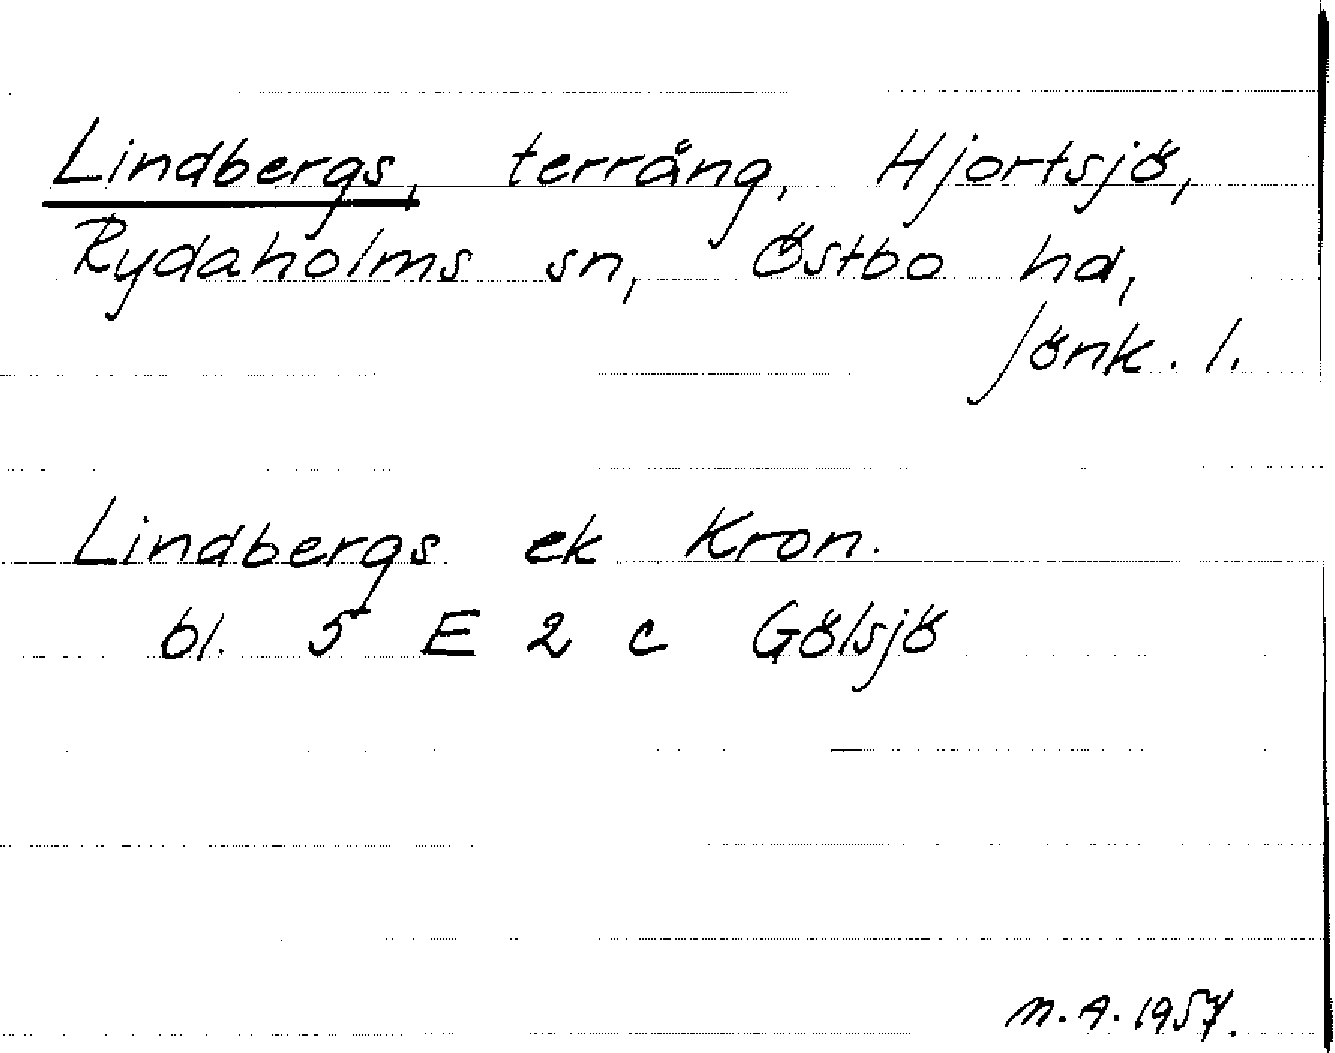 Lindbergs, terräng, Hjortsjö,
Rydaholms sn, Östbo hd,
Jönk. l.
Lindbergs ek Kron.
bl. 5 E 2 c Gölsjö
M.A. 1957.